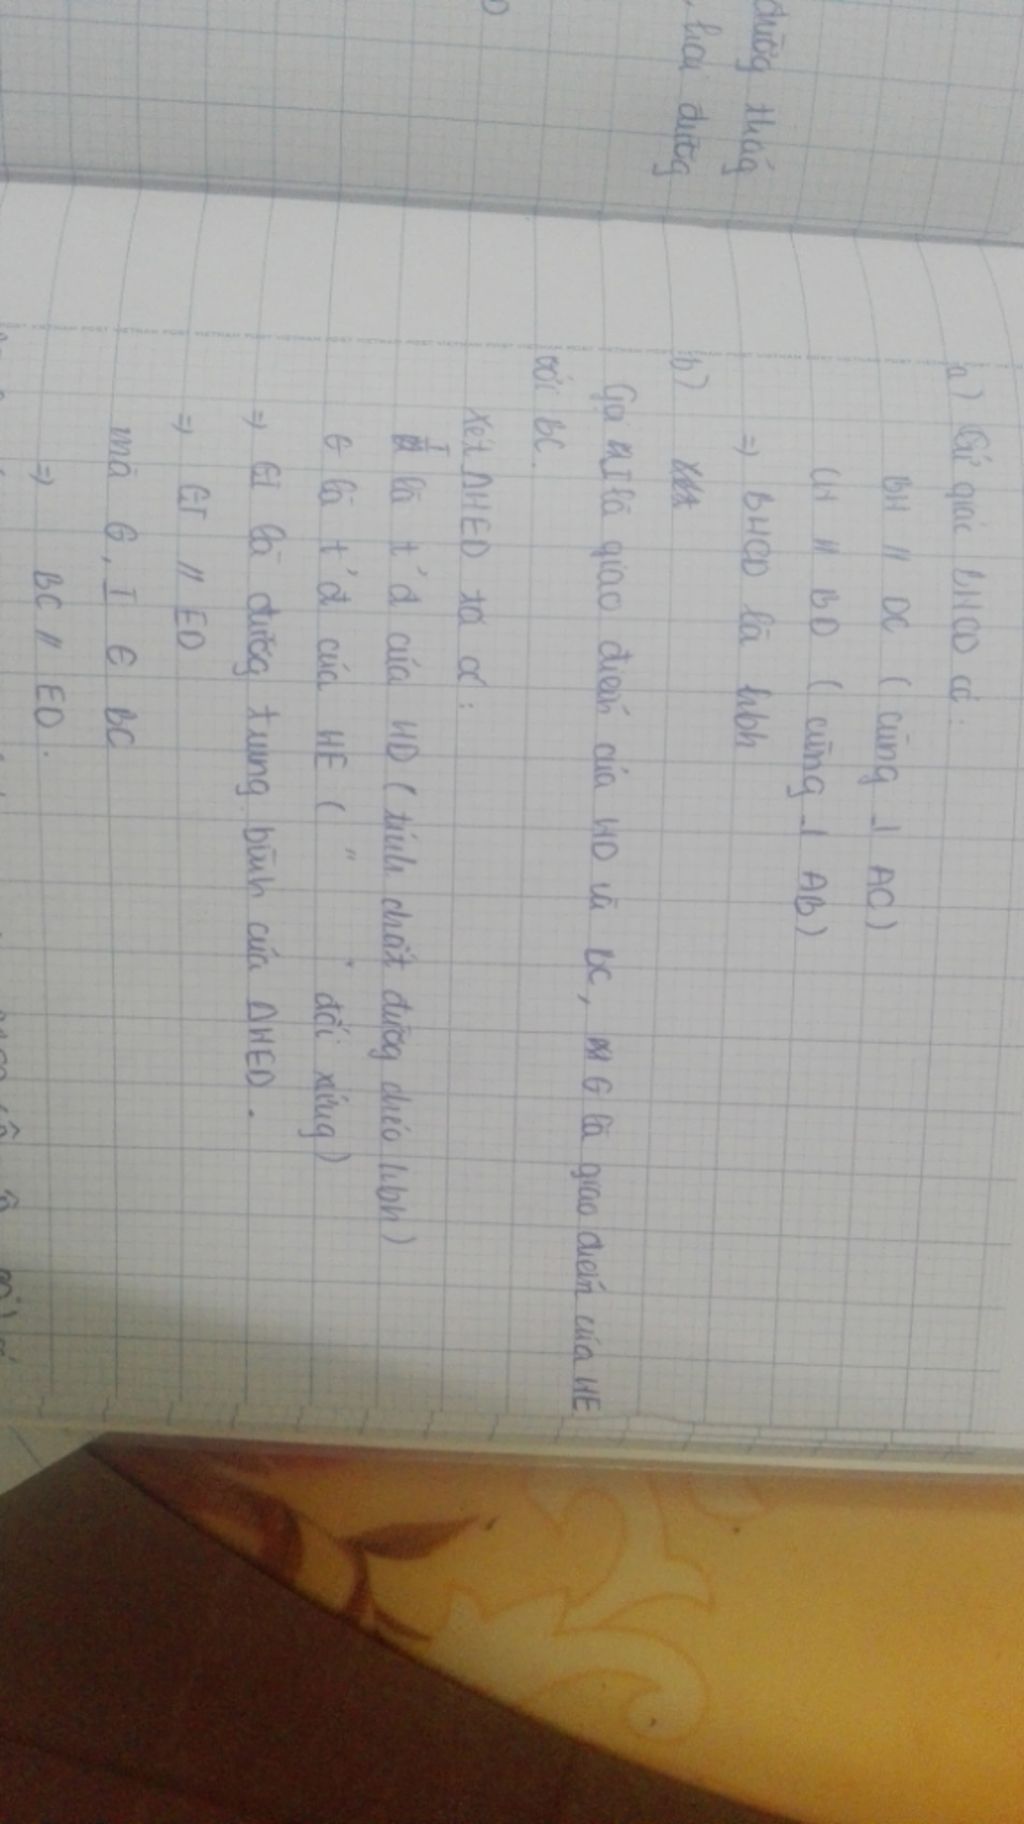 đường thẳg
, hai đường
a) Tứ giác BHCD có:
BH // DC ( cùng ⊥ AC)
CH // BD ( cùng ⊥ AB)
⇒ BHCD là hbh
b)
Gọi I là giao điểm của HD và BC, G là giao điểm của HE
với BC.
Xét ΔHED ta có:
I là t'đ của HD ( tính chất đường chéo hbh)
G là t'đ của HE ( " " đối xứng)
⇒ GI là đường trung bình của ΔHED.
⇒ GI // ED
mà G, I ∈ BC
⇒ BC // ED.